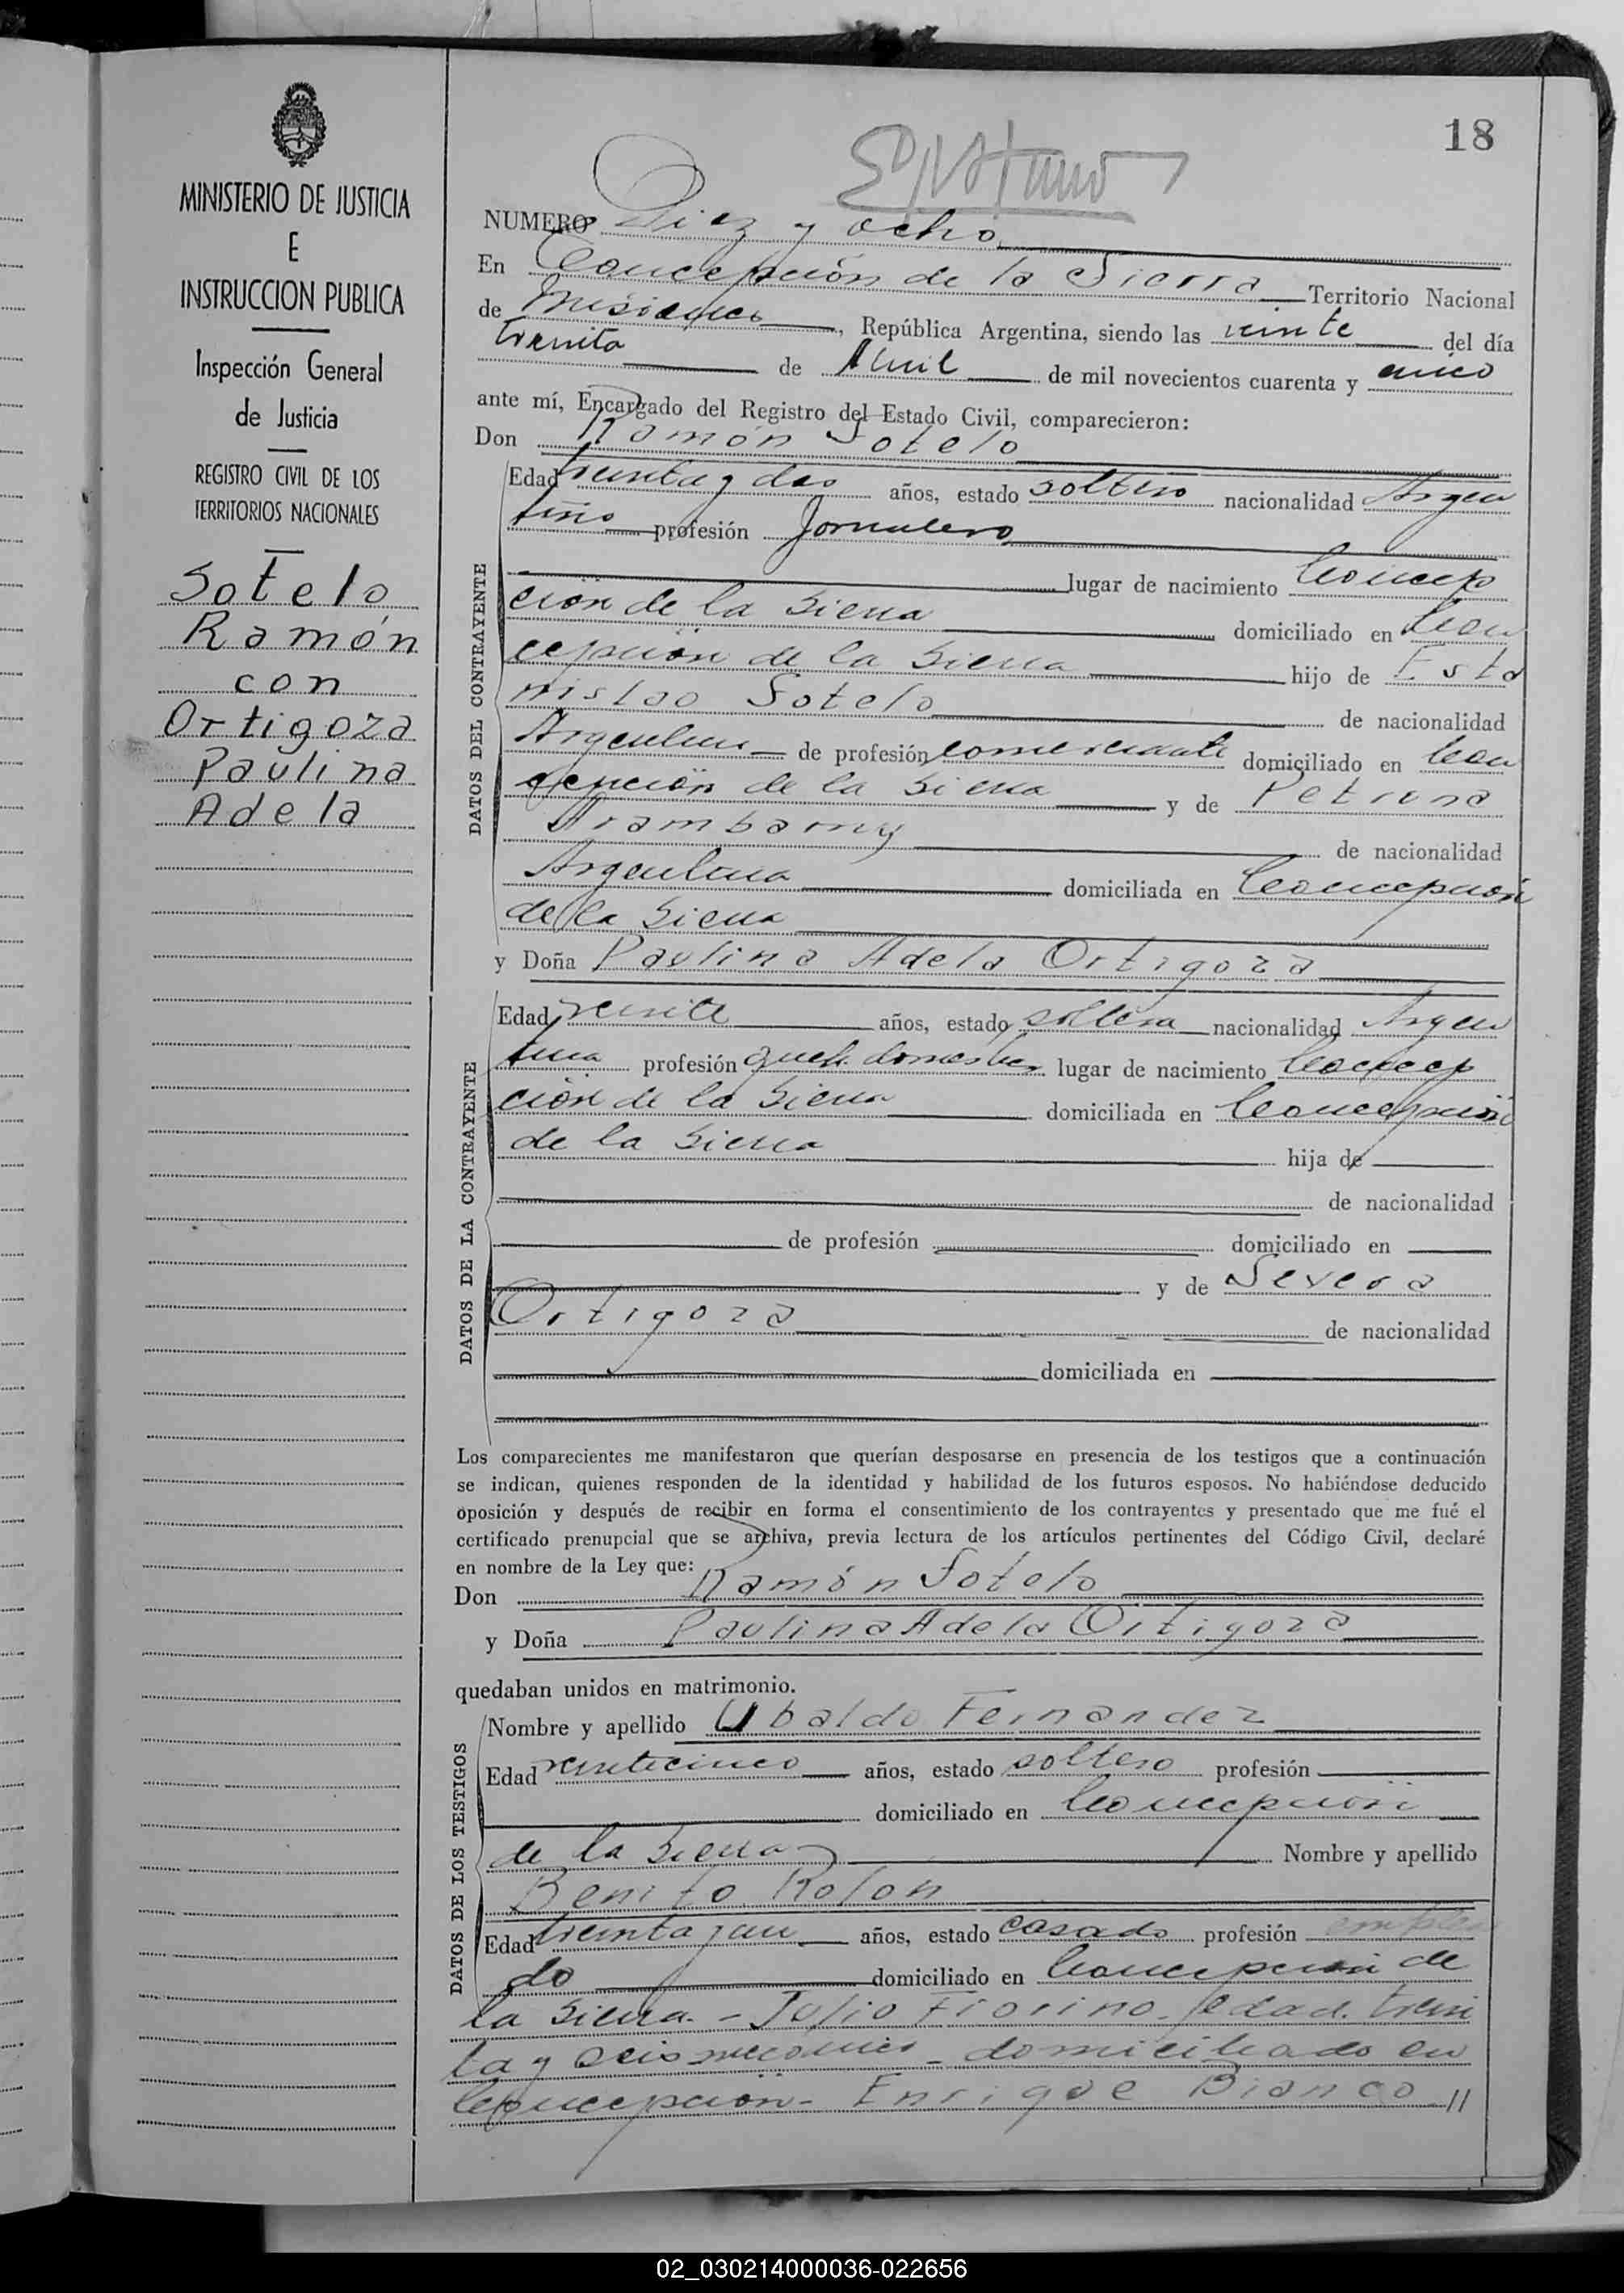 MINISTERIO DE JUSTICIA
E
INSTRUCCION PUBLICA
Inspección General
de Justicia
REGISTRO CIVIL DE LOS
TERRITORIOS NACIONALES
Sotelo
Ramón
con
Ortigoza
Paulina
Adela
18
NUMERO Diez y ocho
En Concepción de la Sierra Territorio Nacional
de Misiones, República Argentina, siendo las veinte del día
treinta de Abril de mil novecientos cuarenta y cinco
ante mí, Encargado del Registro del Estado Civil, comparecieron:
Don Ramón Sotelo
DATOS DEL CONTRAYENTE
Edad treinta y dos años, estado soltero nacionalidad Argen
tino profesión Jornalero
lugar de nacimiento Concep
ción de la Sierra domiciliado en Con
cepción de la Sierra hijo de Esta
nislao Sotelo de nacionalidad
Argentino de profesión comerciante domiciliado en Con
cepción de la Sierra y de Petrona
Arambarny de nacionalidad
Argentina domiciliada en Concepción
de la Sierra
y Doña Paulina Adela Ortigoza
DATOS DE LA CONTRAYENTE
Edad veinte años, estado soltera nacionalidad Argen
tina profesión queh. domesticos lugar de nacimiento Concep
ción de la Sierra domiciliada en Concepción
de la Sierra hija de
de nacionalidad
de profesión domiciliado en
y de Severa
Ortigoza de nacionalidad
domiciliada en
Los comparecientes me manifestaron que querían desposarse en presencia de los testigos que a continuación
se indican, quienes responden de la identidad y habilidad de los futuros esposos. No habiéndose deducido
oposición y después de recibir en forma el consentimiento de los contrayentes y presentado que me fué el
certificado prenupcial que se archiva, previa lectura de los artículos pertinentes del Código Civil, declaré
en nombre de la Ley que:
Don Ramón Sotelo
y Doña Paulina Adela Ortigoza
quedaban unidos en matrimonio.
DATOS DE LOS TESTIGOS
Nombre y apellido Ubaldo Fernandez
Edad veinticinco años, estado soltero profesión
domiciliado en Concepción
de la Sierra Nombre y apellido
Benito Rolon
Edad treinta y un años, estado casado profesión emplea
do domiciliado en Concepcion de
la Sierra.- Julio Fiorino, edad. trein
ta y seis domiciliado en
Concepción- Enrique Bianco //
02_030214000036-022656